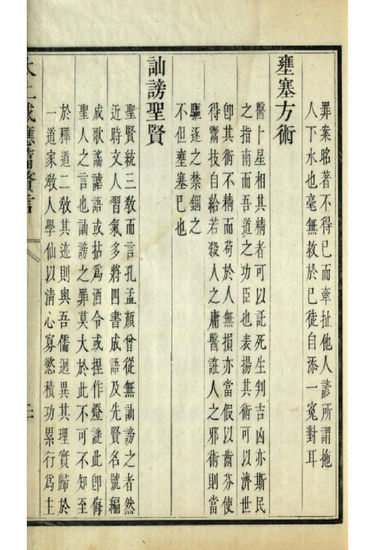 罪案昭著不得已而牽扯他人諺所謂拖
人下水也毫無救於已徒自添一冤對耳
壅塞方術
醫卜星相其精者可以託死生判吉凶亦斯民
之指南而吾道之功臣也表揚其術可以濟世
卽其術不精而苟於人無損亦當假以齒芬使
得鬻技自給若殺人之庸醫誑人之邪術則當
驅逐之禁錮之
不但壅塞已也
訕謗聖賢
聖賢統三敎而言孔孟顏曾從無訕謗之者然
近時文人習氣多將四書成語及先賢名號編
成歌謠謔語或拈爲酒令或捏作燈謎此卽侮
聖人之言也訕謗之罪莫大於此不可不知至
於釋道二敎其迹則與吾儒迥異其理實歸於
一道家敎人學仙以清心寡慾積功累行爲主
太上感應篇贅言